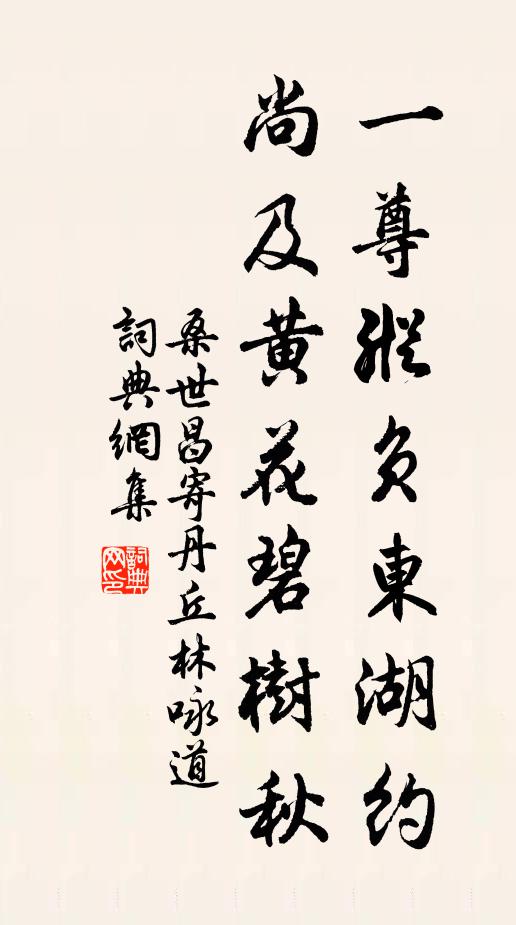 一尊縱負東湖約
尚及黃花碧樹秋
桑世昌寄丹丘林咏道
詞典網集
詞典网印